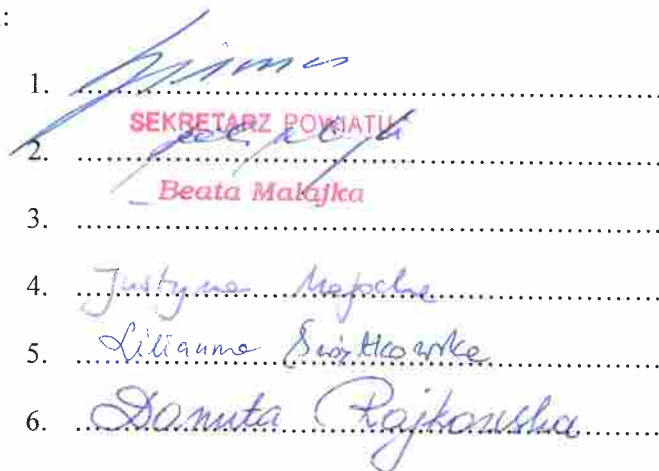 :
1. ....................
SEKRETARZ POWIATU
2. ....................
Beata Małajka
3. ....................
4. Justyna ....................
5. Lilianna Świątkowska
6. Donuta Rajkowska